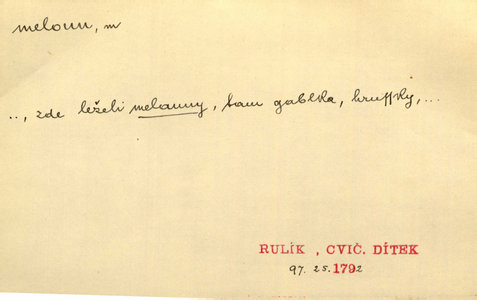 meloun, m
.., zde leželi melauny, tam gablka, hrussky, ...
RULÍK , CVIČ. DÍTEK
97. 25. 1792